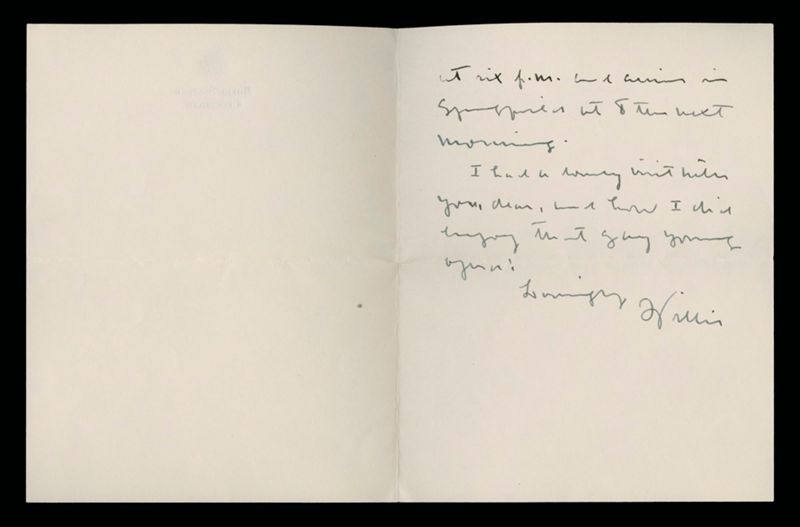 at six p.m. and arrive in
Springfield at 8 the next
morning.
I had a lovely visit with
you, dear, and how I did
enjoy that gay young
opera!
Lovingly
Willie